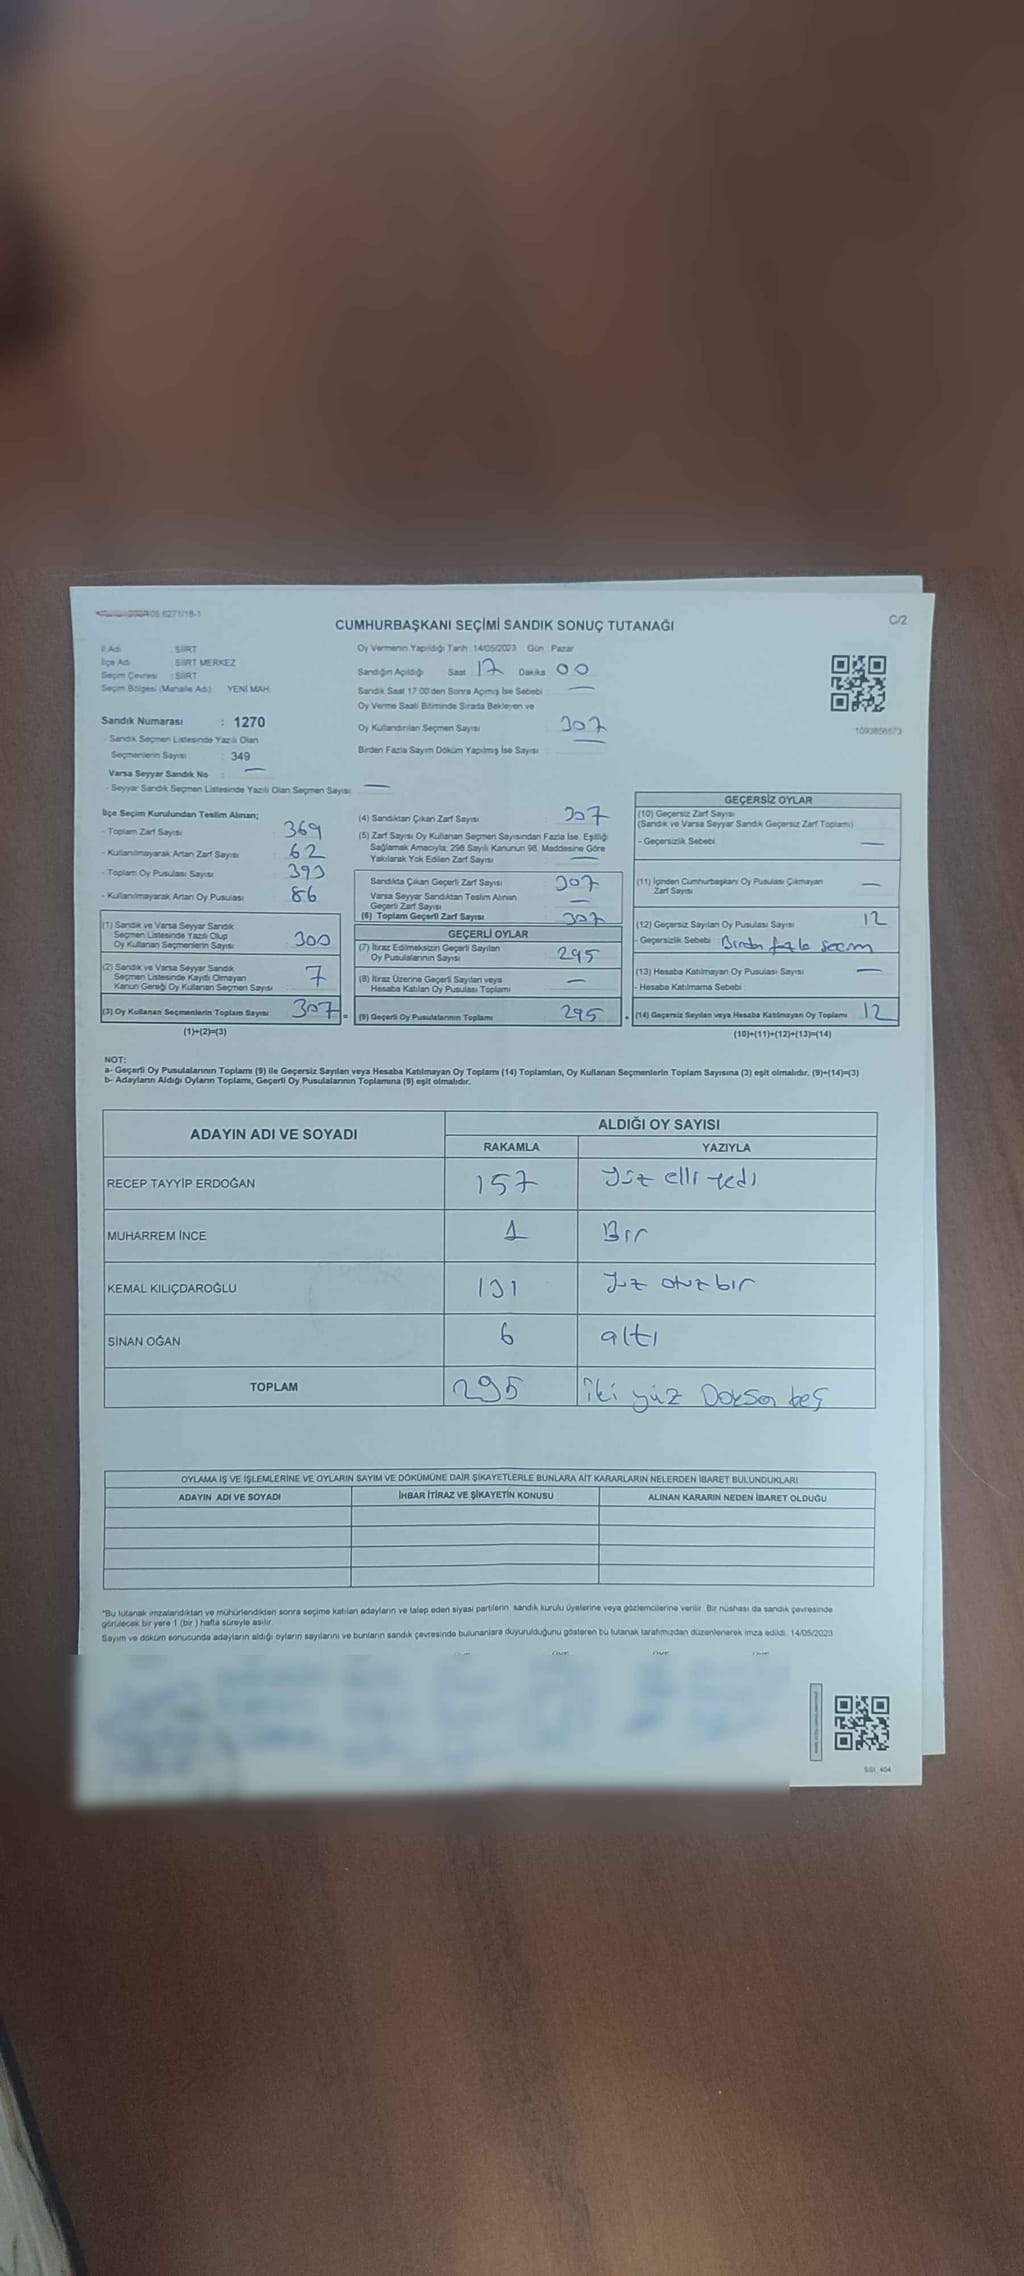 05.6271/18-1
C/2
CUMHURBAŞKANI SEÇİMİ SANDIK SONUÇ TUTANAĞI
İl Adı : SİİRT
İlçe Adı : SİİRT MERKEZ
Seçim Çevresi : SİİRT
Seçim Bölgesi (Mahalle Adı) YENİ MAH.
Sandık Numarası : 1270
- Sandık Seçmen Listesinde Yazılı Olan
Seçmenlerin Sayısı : 349
Varsa Seyyar Sandık No : —
- Seyyar Sandık Seçmen Listesinde Yazılı Olan Seçmen Sayısı: —
Oy Vermenin Yapıldığı Tarih :14/05/2023 Gün : Pazar
Sandığın Açıldığı Saat 17 Dakika 00
Sandık Saat 17:00'den Sonra Açılmış İse Sebebi : —
Oy Verme Saati Bitiminde Sırada Bekleyen ve
Oy Kullandırılan Seçmen Sayısı 307
Birden Fazla Sayım Döküm Yapılmış İse Sayısı : —
1093856573
İlçe Seçim Kurulundan Teslim Alınan;
- Toplam Zarf Sayısı : 369
- Kullanılmayarak Artan Zarf Sayısı : 62
- Toplam Oy Pusulası Sayısı : 393
- Kullanılmayarak Artan Oy Pusulası : 86
(1) Sandık ve Varsa Seyyar Sandık
Seçmen Listesinde Yazılı Olup
Oy Kullanan Seçmenlerin Sayısı 300
(2) Sandık ve Varsa Seyyar Sandık
Seçmen Listesinde Kayıtlı Olmayan
Kanun Gereği Oy Kullanan Seçmen Sayısı 7
(3) Oy Kullanan Seçmenlerin Toplam Sayısı 307 =
(1)+(2)=(3)
(4) Sandıktan Çıkan Zarf Sayısı 307
(5) Zarf Sayısı Oy Kullanan Seçmen Sayısından Fazla İse, Eşitliği
Sağlamak Amacıyla, 298 Sayılı Kanunun 98. Maddesine Göre
Yakılarak Yok Edilen Zarf Sayısı —
Sandıkta Çıkan Geçerli Zarf Sayısı 307
Varsa Seyyar Sandıktan Teslim Alınan
Geçerli Zarf Sayısı —
(6) Toplam Geçerli Zarf Sayısı 307
GEÇERLİ OYLAR
(7) İtiraz Edilmeksizin Geçerli Sayılan
Oy Pusulalarının Sayısı 295
(8) İtiraz Üzerine Geçerli Sayılan veya
Hesaba Katılan Oy Pusulası Toplamı —
(9) Geçerli Oy Pusulalarının Toplamı 295 +
GEÇERSİZ OYLAR
(10) Geçersiz Zarf Sayısı
(Sandık ve Varsa Seyyar Sandık Geçersiz Zarf Toplamı)
- Geçersizlik Sebebi —
(11) İçinden Cumhurbaşkanı Oy Pusulası Çıkmayan
Zarf Sayısı —
(12) Geçersiz Sayılan Oy Pusulası Sayısı 12
- Geçersizlik Sebebi Birden fazla seçim
(13) Hesaba Katılmayan Oy Pusulası Sayısı —
- Hesaba Katılmama Sebebi
(14) Geçersiz Sayılan veya Hesaba Katılmayan Oy Toplamı 12
(10)+(11)+(12)+(13)=(14)
NOT:
a- Geçerli Oy Pusulalarının Toplamı (9) ile Geçersiz Sayılan veya Hesaba Katılmayan Oy Toplamı (14) Toplamları, Oy Kullanan Seçmenlerin Toplam Sayısına (3) eşit olmalıdır. (9)+(14)=(3)
b- Adayların Aldığı Oyların Toplamı, Geçerli Oy Pusulalarının Toplamına (9) eşit olmalıdır.
ADAYIN ADI VE SOYADI
ALDIĞI OY SAYISI
RAKAMLA YAZIYLA
RECEP TAYYİP ERDOĞAN 157 Yüz elli yedi
MUHARREM İNCE 1 Bir
KEMAL KILIÇDAROĞLU 131 Yüz otuz bir
SİNAN OĞAN 6 altı
TOPLAM 295 İki yüz Doksan beş
OYLAMA İŞ VE İŞLEMLERİNE VE OYLARIN SAYIM VE DÖKÜMÜNE DAİR ŞİKAYETLERLE BUNLARA AİT KARARLARIN NELERDEN İBARET BULUNDUKLARI
ADAYIN ADI VE SOYADI İHBAR İTİRAZ VE ŞİKAYETİN KONUSU ALINAN KARARIN NEDEN İBARET OLDUĞU
*Bu tutanak imzalandıktan ve mühürlendikten sonra seçime katılan adayların ve talep eden siyasi partilerin sandık kurulu üyelerine veya gözlemcilerine verilir. Bir nüshası da sandık çevresinde
görülecek bir yere 1 (bir ) hafta süreyle asılır.
Sayım ve döküm sonucunda adayların aldığı oyların sayılarını ve bunların sandık çevresinde bulunanlara duyurulduğunu gösteren bu tutanak tarafımızdan düzenlenerek imza edildi. 14/05/2023